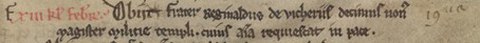 E xiii kl febr. Obiit frater Reginaldus de vicheriis decimus non9 19us
magister milicie templi. cuius aīa requiescat in pace.